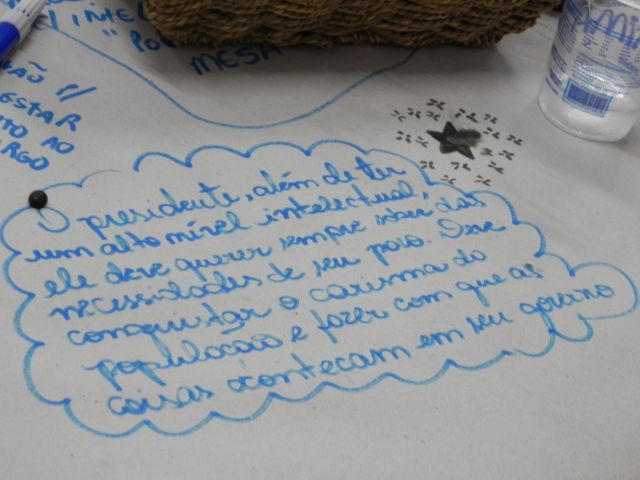 INTEL
"PO
MESA
ESTAR
AO
O presidente, além de ter
um alto nível intelectual,
ele deve querer sempre saber das
necessidades de seu povo. Deve
conquistar o carisma da
população e fazer com que as
coisas aconteçam em seu governo